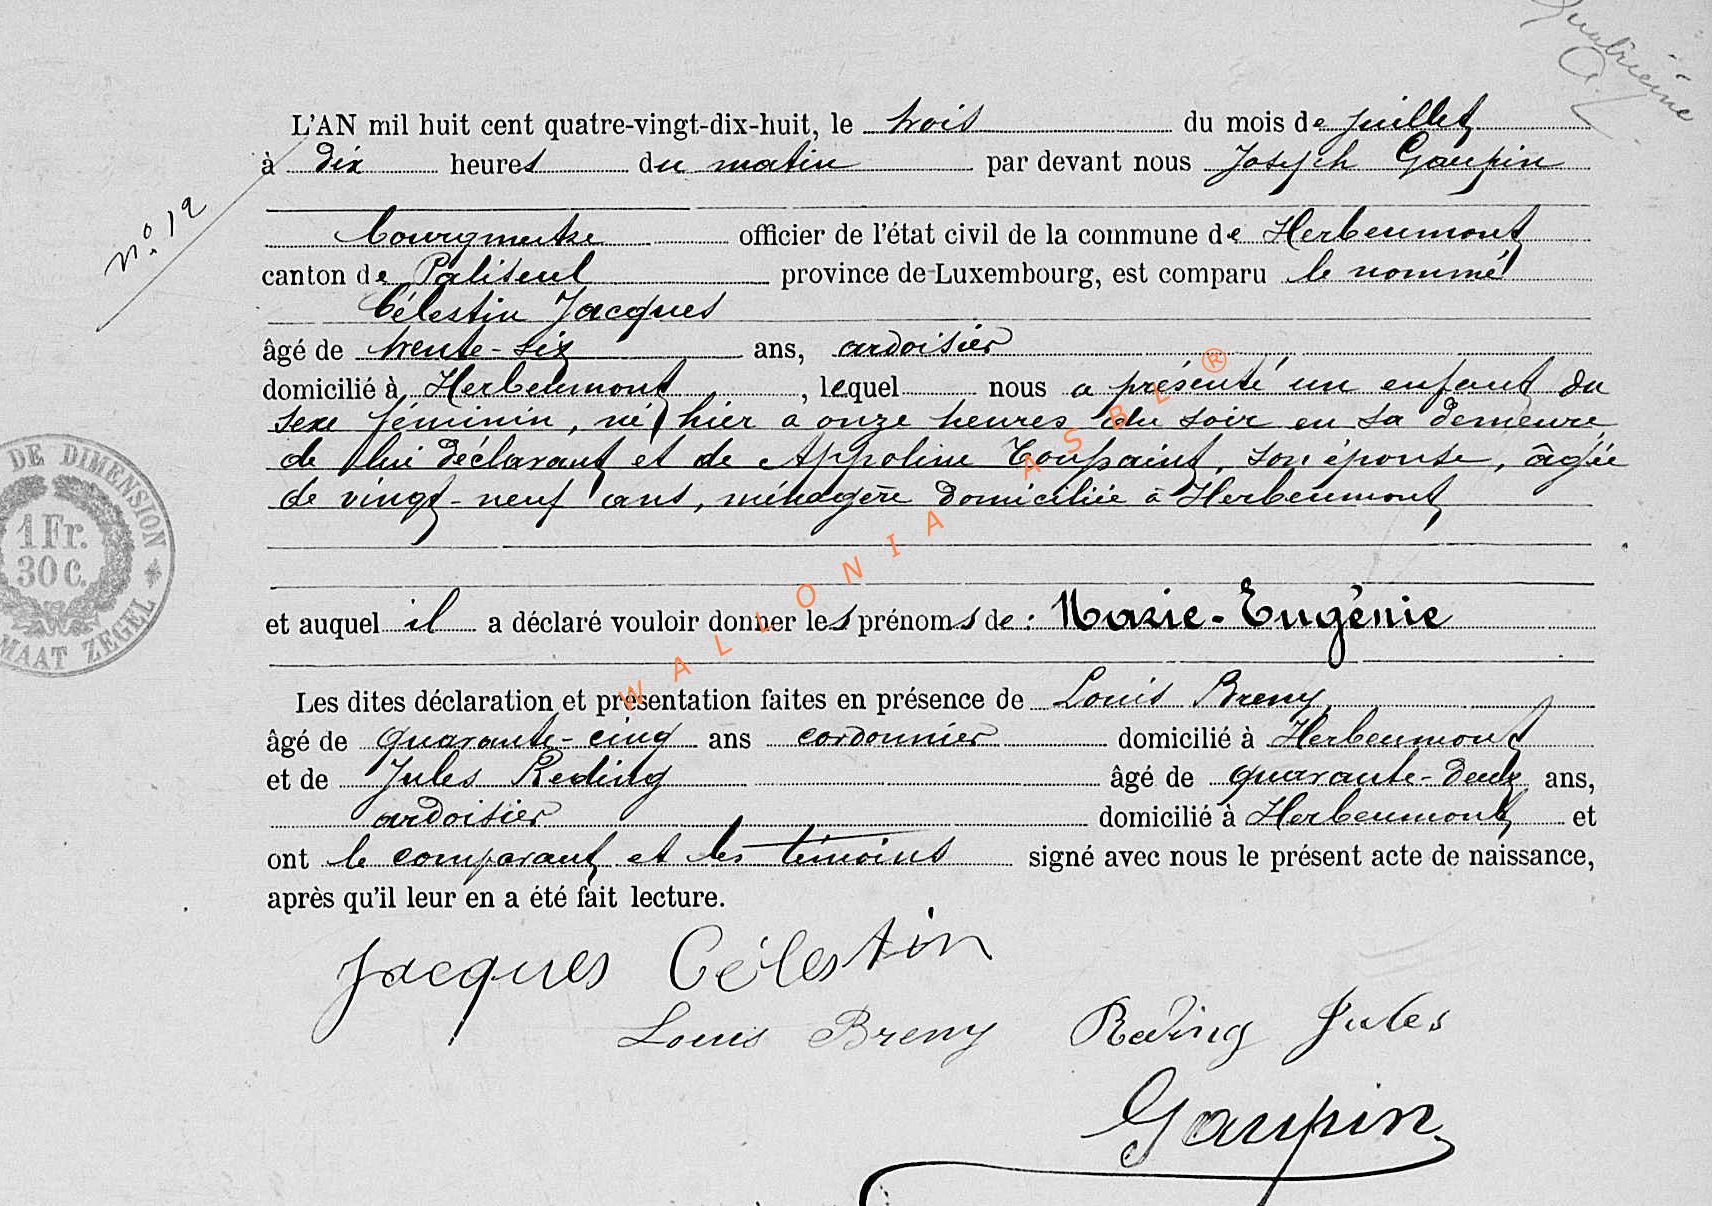 Quatrième
L'AN mil huit cent quatre-vingt-dix-huit, le trois du mois de juillet
à dix heures du matin par devant nous Joseph Gaupin
n° 12
Bourgmestre officier de l'état civil de la commune de Herbeumont
canton de Paliseul province de Luxembourg, est comparu le nommé
Célestin Jacques
âgé de trente-six ans, ardoisier
domicilié à Herbeumont, lequel nous a présenté un enfant du
sexe féminin, né hier à onze heures du soir en sa demeure,
de lui déclarant et de Appoline Toupaint, son épouse, âgée
de vingt-neuf ans, ménagère domiciliée à Herbeumont
DE DIMENSION
1 Fr.
30 C.
MAAT ZEGEL
et auquel il a déclaré vouloir donner les prénoms de : Marie-Eugénie
Les dites déclaration et présentation faites en présence de Louis Breny
âgé de quarante-cinq ans cordonnier domicilié à Herbeumont
et de Jules Reding âgé de quarante-deux ans,
ardoisier domicilié à Herbeumont et
ont le comparant et les témoins signé avec nous le présent acte de naissance,
après qu'il leur en a été fait lecture.
Jacques Célestin
Louis Breny Reding Jules
Gaupin
WALLONIA ASBL ®